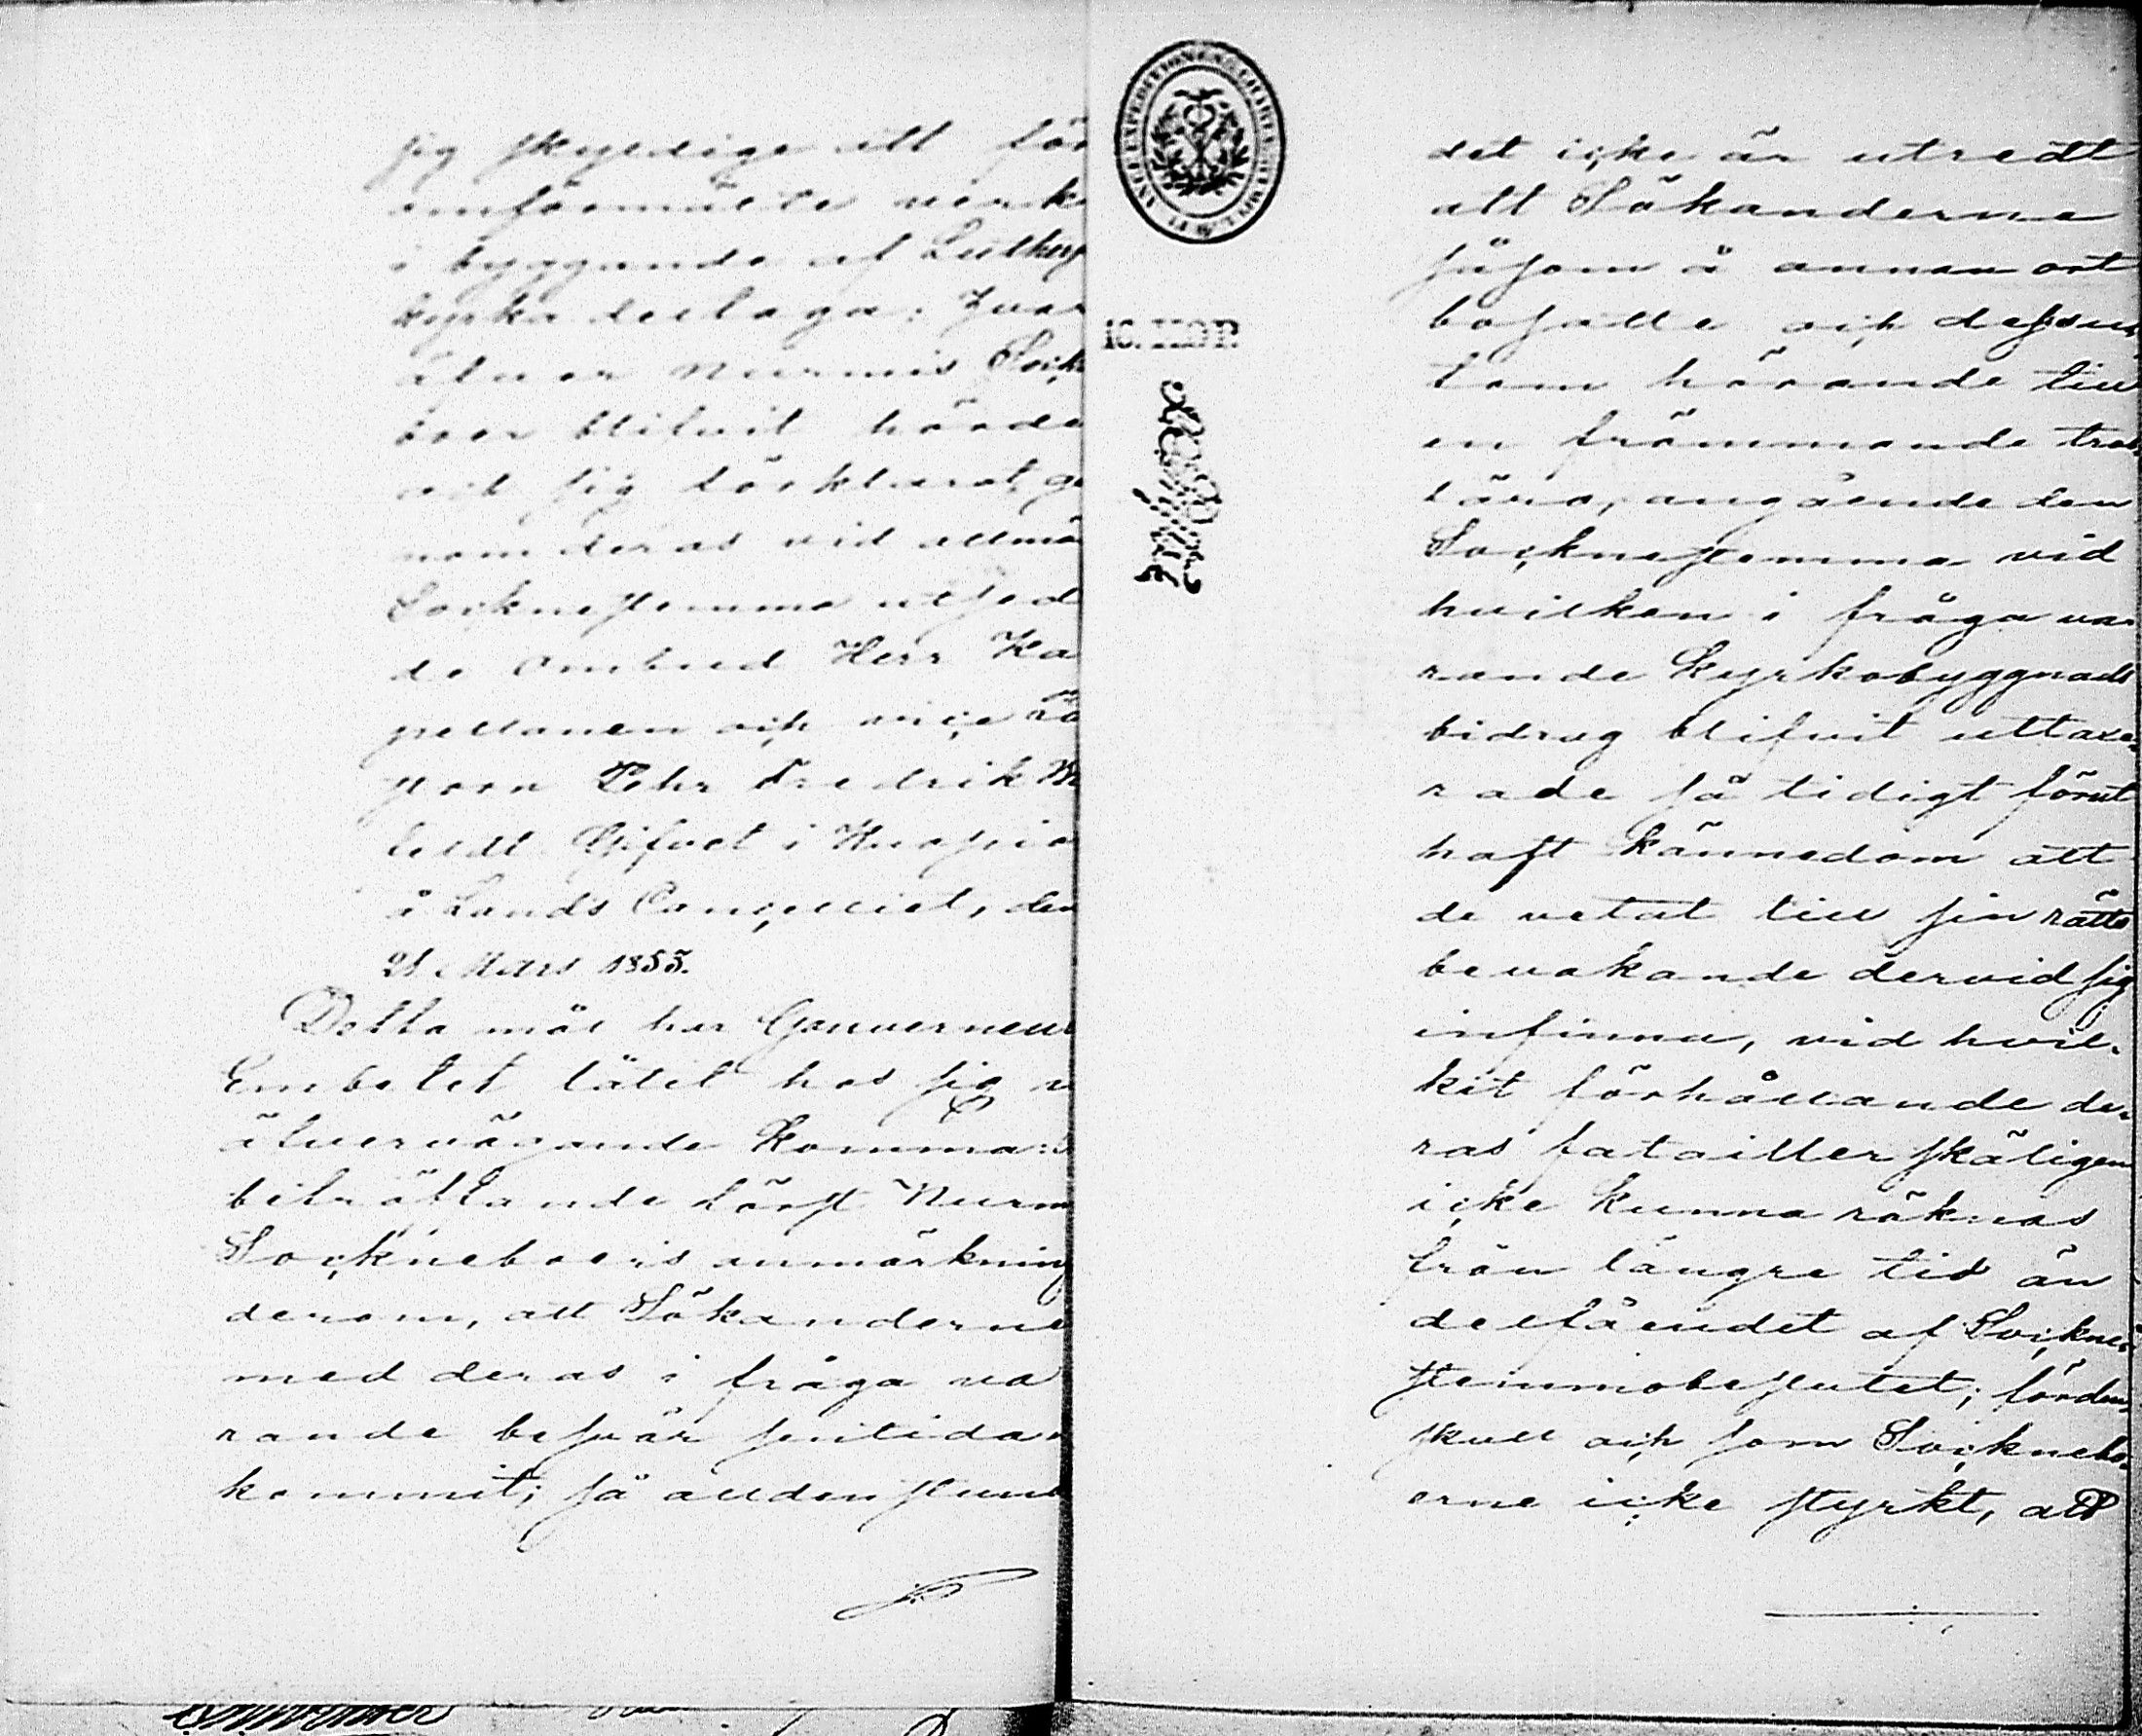 sig skyldige att för
omförmälte verk
i byggande af Luthers
kyrka deltaga: hvar
öfver Nurmis Sock
boer blifvit hörde
och sig förklarat, ge
nom deras vid allmä
Socknestemma utsed
de ombud Herr Ka
pellanen och vice Pa
storn Pehr Fredrik
Gifvet i Kuopio
å Lands Cancelliet, den
21 Mars 1855.
Detta mål har Gouverneurs
Embetet låtit hos sig
öfvervägande komma:
beträffande först Nurm
Sockneboers anmärkning
derom, att Sökanderne
med deras i fråga va
rande besvär sentida
kommit; så alldenstund
det icke är utredt
att Sökanderne
såsom å annan ort
bosatte och dessu,
tom hörande till
en främmande tros
lära, angående den
Socknestemma vid
hvilken i fråga va,
rande Kyrkobyggnads
bidrag blifvit uttaxe,
rade så tidigt förut
haft kännedom att
de vetat till sin rätts
bevakande dervid sig
infinna, vid hvil,
ket förhållande de,
ras fatalier skäligen
icke kunna räknas
från längre tid än
delfåendet af Sockne,
stemmobeslutet; förden,
skull och som Sockneb,
erne icke styrkt, att